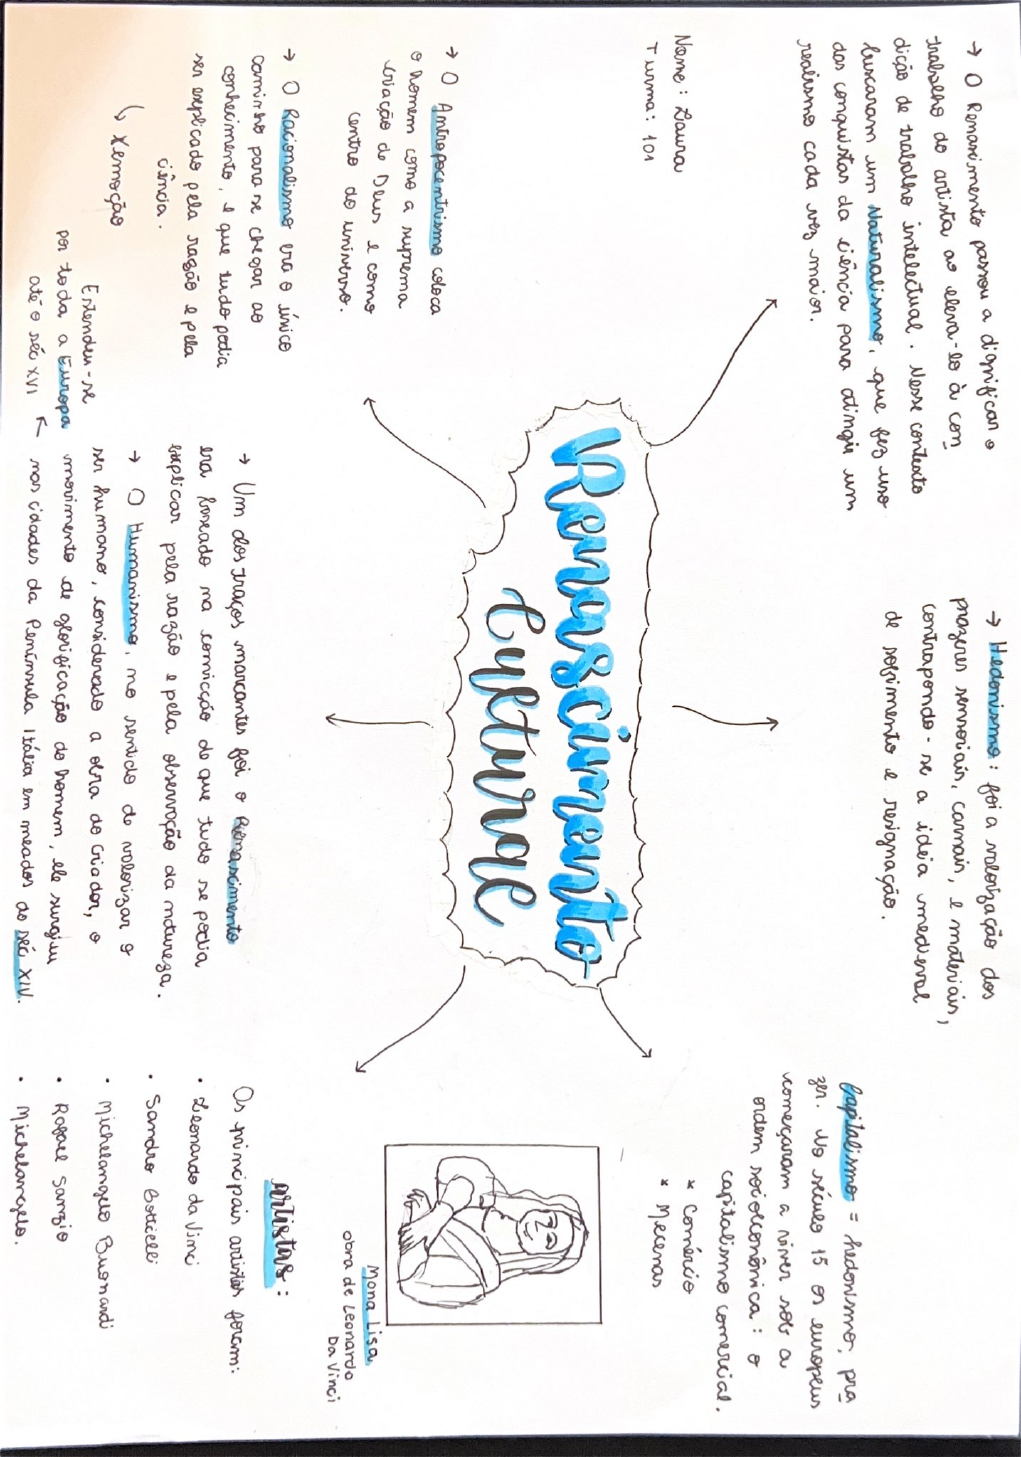 Nome: Laura
Turma: 101
Renascimento
Cultural
→ O Renascimento passou a dignificar o
trabalho do artista ao eleva-lo à con
dição de trabalho intelectual. Nesse contexto
buscaram um Naturalismo, que fez uso
das conquistas da ciência para atingir um
realismo cada vez maior.
→ Hedonismo: foi a valorização dos
prazeres sensoriais, carnais, e materiais,
contrapondo-se a idéia medieval
de sofrimento e resignação.
Capitalismo = hedonismo, pra
zer. No século 15 os europeus
começaram a viver sob a
ordem socioeconônica: o
capitalismo comercial.
× Comércio
× Mecenas
→ O Antropocentrismo coloca
o homem como a suprema
criação de Deus e como
centro do universo.
→ O Racionalismo era o único
caminho para se chegar ao
conhecimento, e que tudo podia
ser explicado pela razão e pela
ciência.
↳ Xemoção
→ Um dos traços marcantes foi o Renascimento
era baseado na convicção de que tudo se podia
explicar pela razão e pela observação da natureza.
→ O Humanismo, no sentido de valorizar o
ser humano, considerado a obra do Criador, o
movimento de glorificação do homem, ele surgiu
nas cidades da Península Itália em meados do séc XIV.
Estendeu-se
por toda a Europa
até o séc XVI
Mona Lisa
obra de Leonardo
Da Vinci
artistas:
Os principais artistas foram:
• Leonardo da Vinci
• Sandro Botticelli
• Michelangelo Buonardi
• Rafael Sanzio
• Michelangelo.